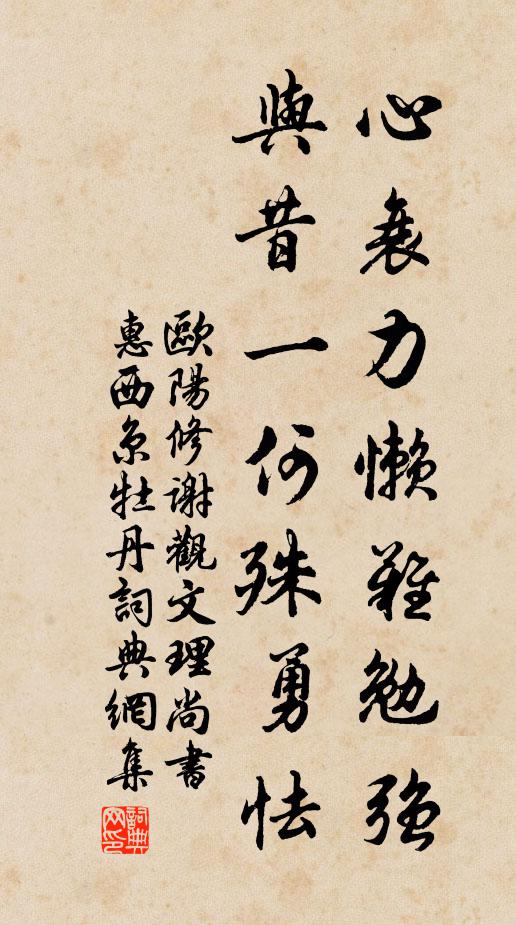 心衰力懶難勉強
與昔一何殊勇怯
歐陽修謝觀文理尚書
惠西京牡丹詞典網集
詞典网印